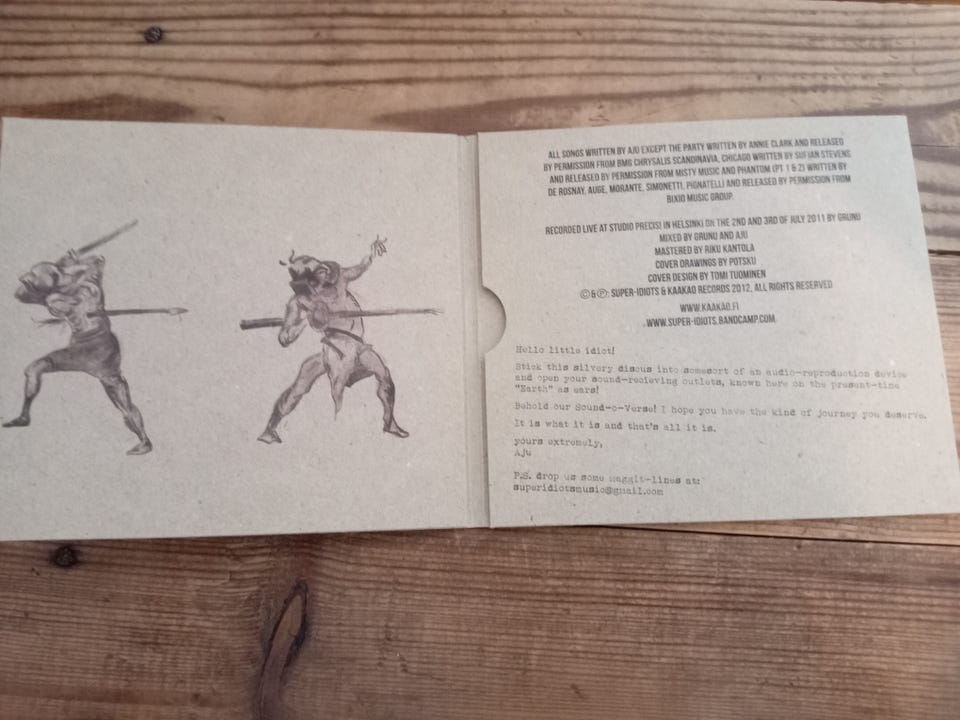 ALL SONGS WRITTEN BY AJU EXCEPT THE PARTY WRITTEN BY ANNIE CLARK AND RELEASED
BY PERMISSION FROM BMG CHRYSALIS SCANDINAVIA, CHICAGO WRITTEN BY SUFJAN STEVENS
AND RELEASED BY PERMISSION FROM MISTY MUSIC AND PHANTOM (PT 1 & 2) WRITTEN BY
DE ROSNAY, AUGE, MORANTE, SIMONETTI, PIGNATELLI AND RELEASED BY PERMISSION FROM
BIXIO MUSIC GROUP.
RECORDED LIVE AT STUDIO PRECISI IN HELSINKI ON THE 2ND AND 3RD OF JULY 2011 BY GRUNU
MIXED BY GRUNU AND AJU
MASTERED BY RIKU KANTOLA
COVER DRAWINGS BY POTSKU
COVER DESIGN BY TOMI TUOMINEN
©&℗: SUPER-IDIOTS & KAAKAO RECORDS 2012, ALL RIGHTS RESERVED
WWW.KAAKAO.FI
WWW.SUPER-IDIOTS.BANDCAMP.COM
Hello little idiot!
Stick this silvery discus into somesort of an audio-reproduction device
and open your sound-recieving outlets, known here on the present-time
"Earth" as ears!
Behold our Sound-o-Verse! I hope you have the kind of journey you deserve.
It is what it is and that's all it is.
yours extremely,
Aju
P.S. drop us some maggit-lines at:
superidiotsmusic@gmail.com